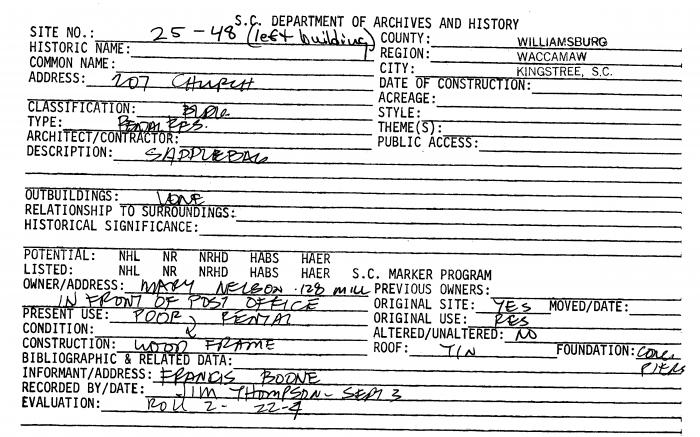 S.C. DEPARTMENT OF ARCHIVES AND HISTORY
SITE NO.: 25-48 (left building)
HISTORIC NAME:
COMMON NAME:
ADDRESS: 207 CHURCH
COUNTY: WILLIAMSBURG
REGION: WACCAMAW
CITY: KINGSTREE, S.C.
DATE OF CONSTRUCTION:
ACREAGE:
STYLE:
THEME(S):
PUBLIC ACCESS:
CLASSIFICATION: BLDG
TYPE: RENTAL RES.
ARCHITECT/CONTRACTOR:
DESCRIPTION: SADDLEBAG
OUTBUILDINGS: NONE
RELATIONSHIP TO SURROUNDINGS:
HISTORICAL SIGNIFICANCE:
POTENTIAL: NHL NR NRHD HABS HAER
LISTED: NHL NR NRHD HABS HAER S.C. MARKER PROGRAM
OWNER/ADDRESS: MARY NELSON 128 MILL
IN FRONT OF POST OFFICE
PRESENT USE: POOR, RENTAL
CONDITION:
CONSTRUCTION: WOOD FRAME
PREVIOUS OWNERS:
ORIGINAL SITE: YES MOVED/DATE:
ORIGINAL USE: RES
ALTERED/UNALTERED: NO
ROOF: TIN FOUNDATION: CONC
PIERS
BIBLIOGRAPHIC & RELATED DATA:
INFORMANT/ADDRESS: FRANCIS BOONE
RECORDED BY/DATE: JIM THOMPSON - SEPT 3
EVALUATION: ROLL 2- 22-4